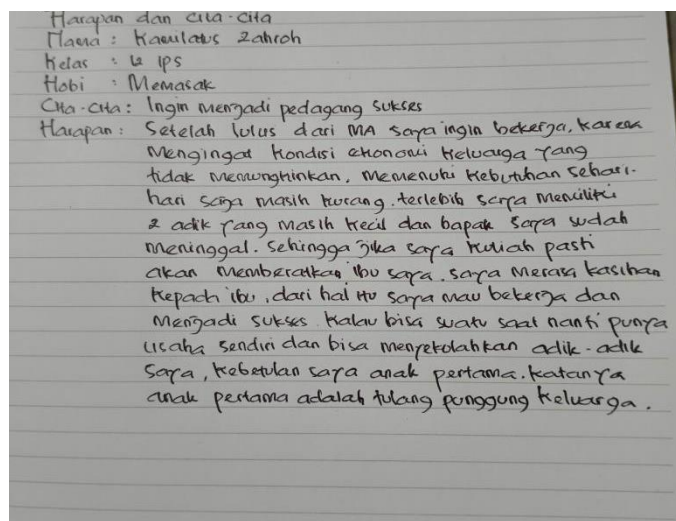 Harapan dan Cita-Cita
Nama : Kamilatus Zahroh
Kelas : 12 IPS
Hobi : Memasak
Cita-Cita : Ingin menjadi pedagang sukses
Harapan : Setelah lulus dari MA saya ingin bekerja, karena
Mengingat kondisi ekonomi keluarga yang
tidak memungkinkan. memenuhi kebutuhan sehari-
hari saja masih kurang. terlebih saya memiliki
2 adik yang masih kecil dan bapak saya sudah
meninggal. Sehingga jika saya kuliah pasti
akan memberatkan ibu saya. saya merasa kasihan
kepada ibu, dari hal itu saya mau bekerja dan
menjadi sukses. Kalau bisa suatu saat nanti punya
usaha sendiri dan bisa menyekolahkan adik-adik
saya, kebetulan saya anak pertama. katanya
anak pertama adalah tulang punggung keluarga.